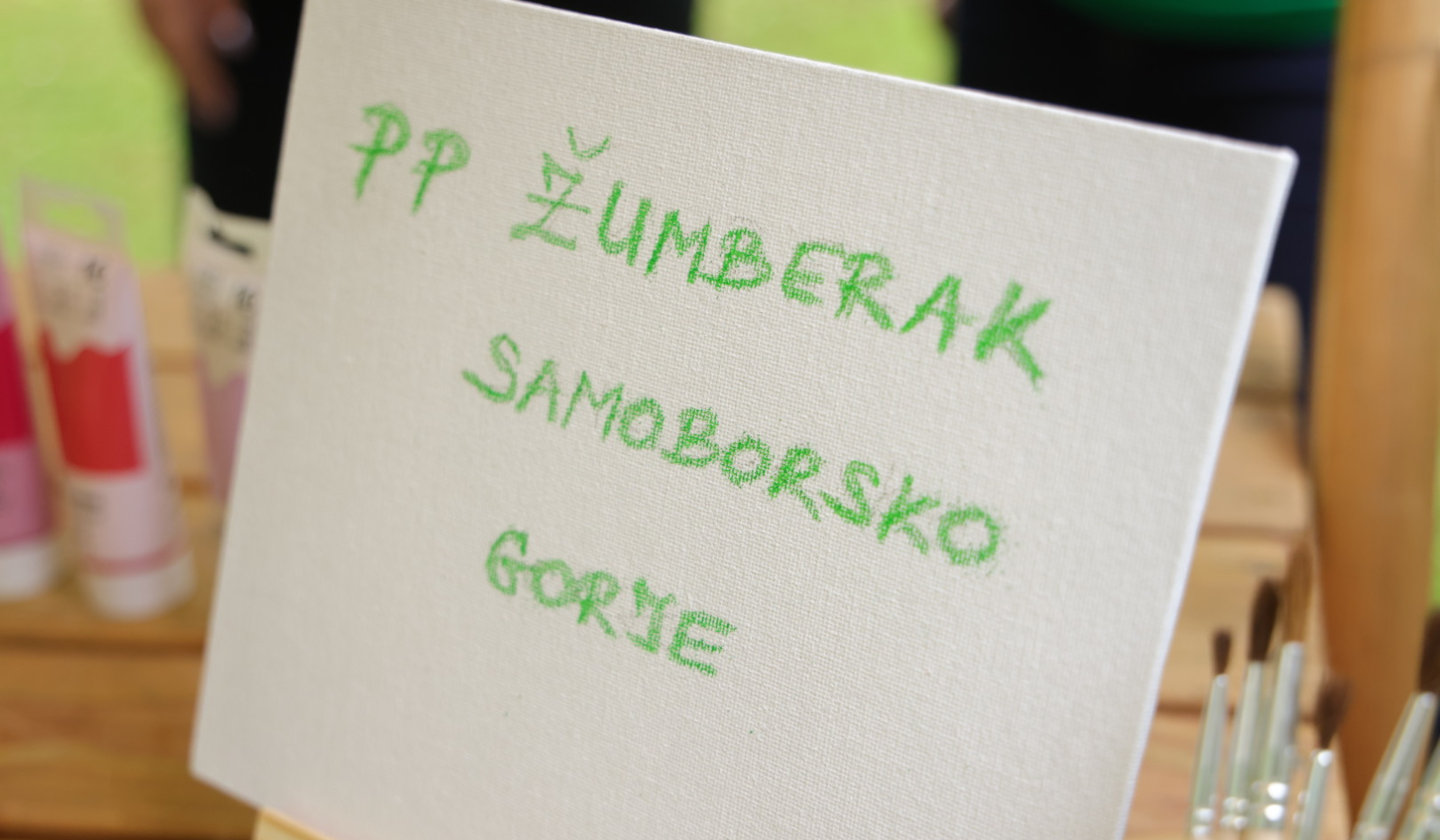 PP ŽUMBERAK
SAMOBORSKO
GORJE